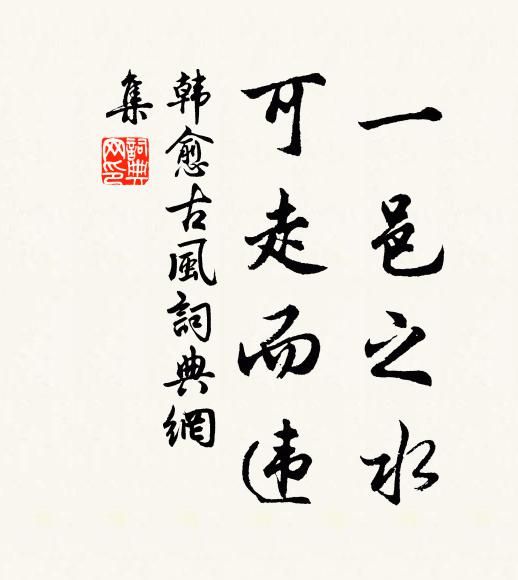 一邑之水
可走而违
韩愈古風詞典網
集
詞典
网印